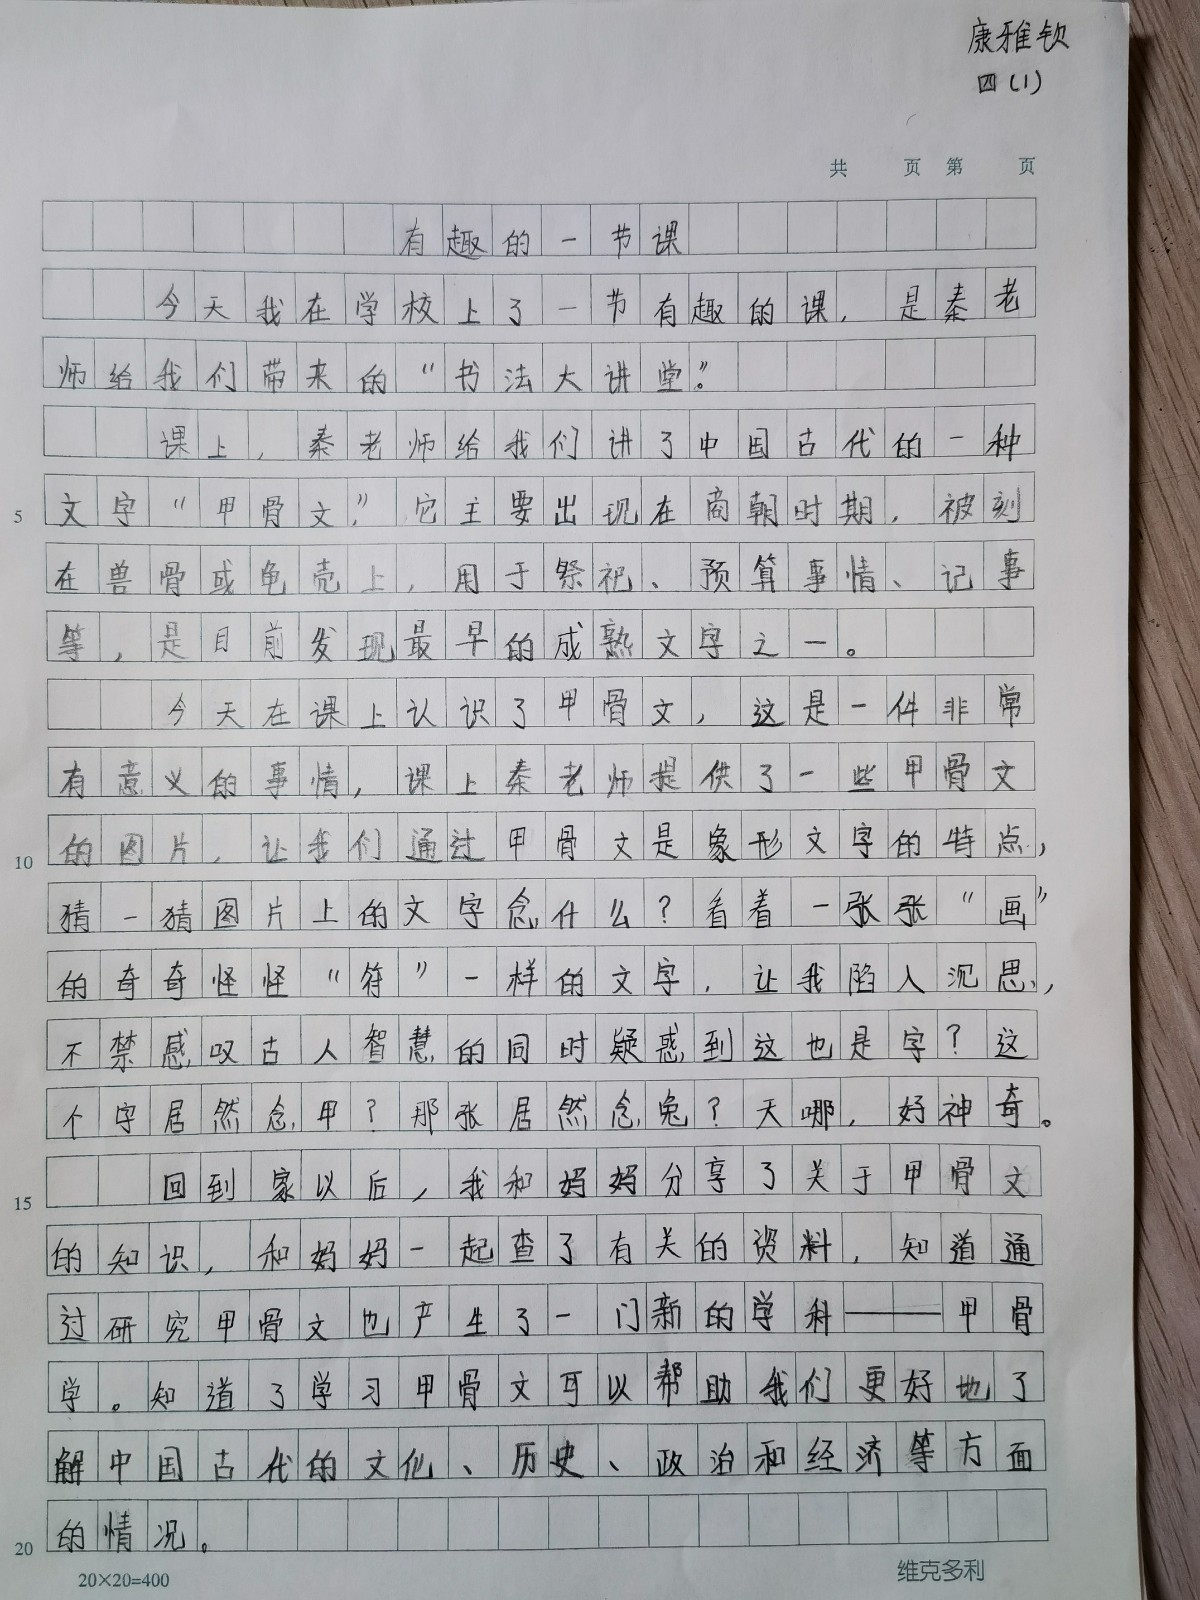 康雅钦
四(1)
共 页 第 页
有趣的一节课
今天我在学校上了一节有趣的课，是秦老
师给我们带来的“书法大讲堂”。
课上，秦老师给我们讲了中国古代的一种
5 文字“甲骨文”，它主要出现在商朝时期，被刻
在兽骨或龟壳上，用于祭祀、预算事情、记事
等，是目前发现最早的成熟文字之一。
今天在课上认识了甲骨文，这是一件非常
有意义的事情，课上秦老师提供了一些甲骨文
10 的图片，让我们通过甲骨文是象形文字的特点，
猜一猜图片上的文字念什么？看着一张张“画”
的奇奇怪怪“符”一样的文字，让我陷入沉思，
不禁感叹古人智慧的同时疑惑到这也是字？这
个字居然念甲？那张居然念兔？天哪，好神奇。
15 回到家以后，我和妈妈分享了关于甲骨文
的知识，和妈妈一起查了有关的资料，知道通
过研究甲骨文也产生了一门新的学科——甲骨
学。知道了学习甲骨文可以帮助我们更好地了
解中国古代的文化、历史、政治和经济等方面
20 的情况。
20×20=400
维克多利